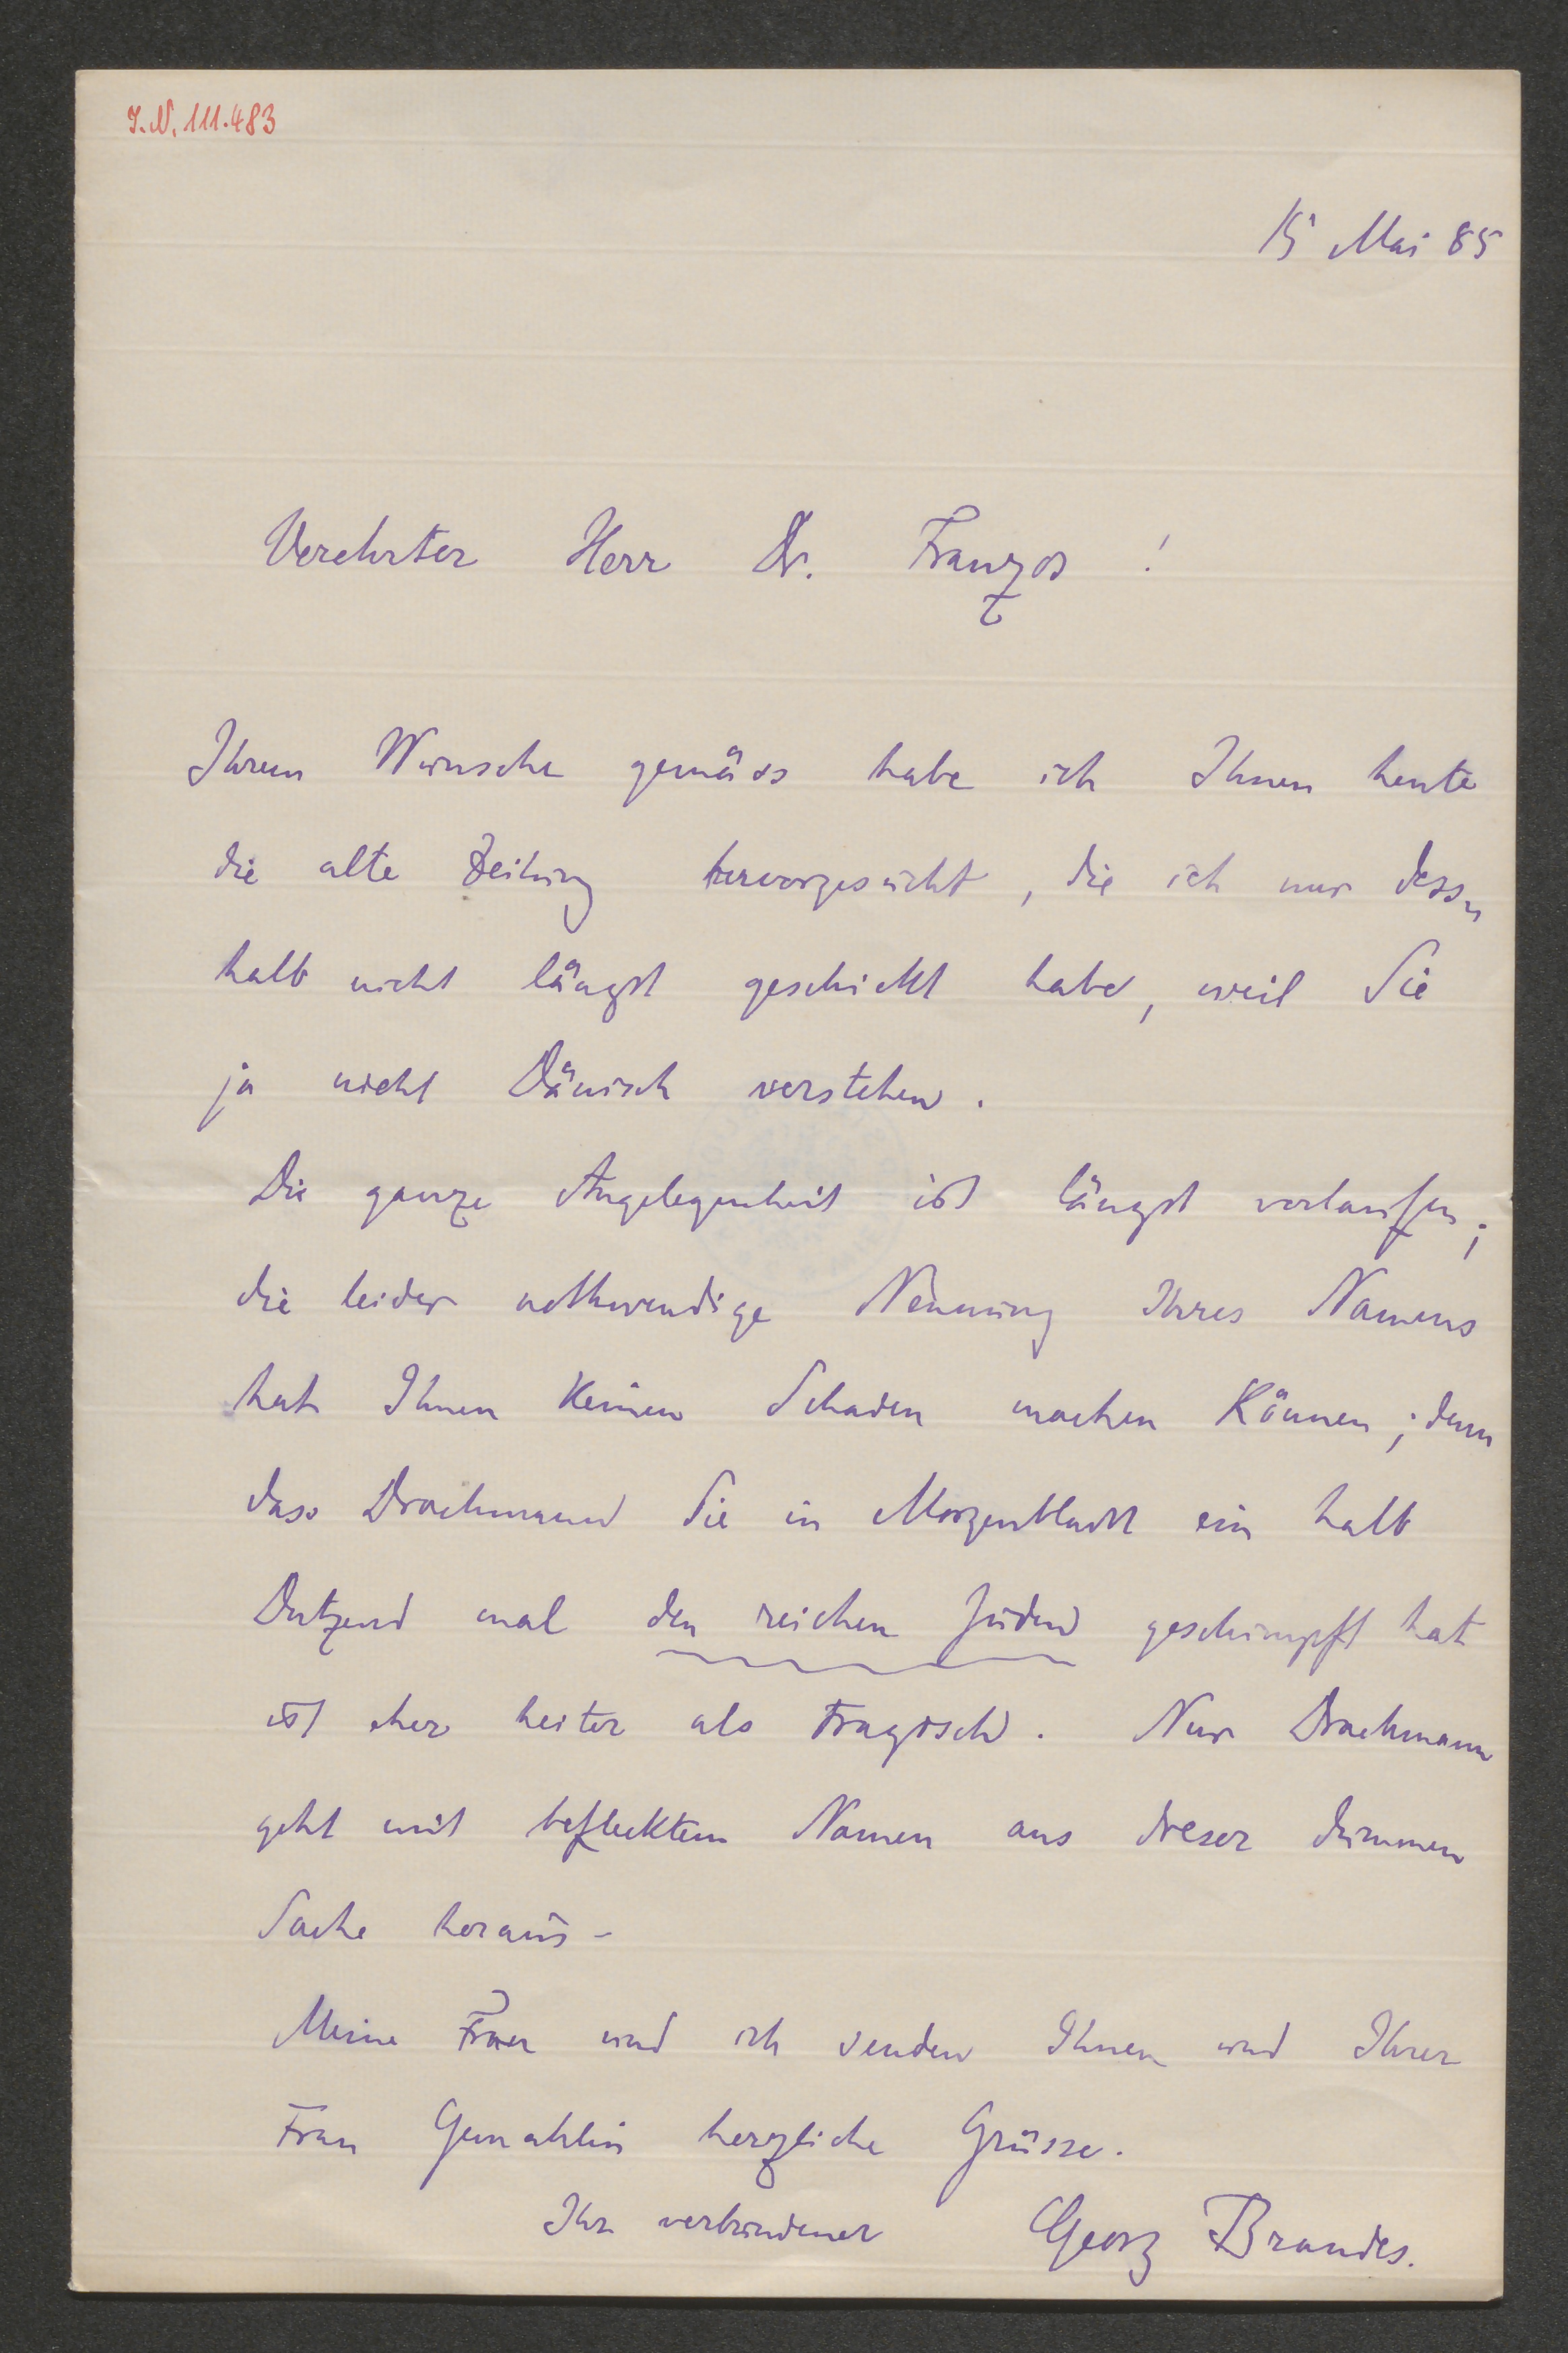 J.N. 111.483
15 Mai 85
Verehrter Herr Dr. Franzos!
Ihrem Wunsche gemäss habe ich Ihnen heute
die alte Zeitung hervorgesucht, die ich nur dess-
halb nicht längst geschickt habe, weil Sie
ja nicht Dänisch verstehen.
Die ganze Angelegenheit ist längst verlaufen;
die leider nothwendige Nennung Ihres Namens
hat Ihnen keinen Schaden machen können; denn
dass Drachmann Sie in Morgenbladet ein halb
Dutzend mal den reichen Juden geschimpft hat
ist eher heiter als tragisch. Nur Drachmann
geht mit beflecktem Namen aus dieser dummen
Sache heraus-
Meine Frau und ich senden Ihnen und Ihrer
Frau Gemahlin herzliche Grüsse.
Ihr verbundener Georg Brandes.